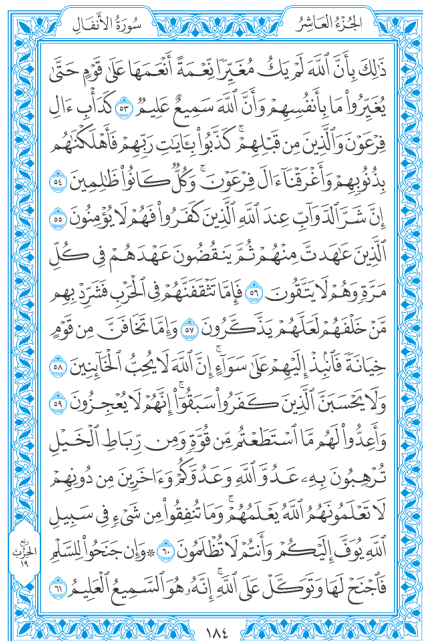 سُورَةُ الأَنفَالِ
الجُزْءُ العَاشِرُ
ذَٰلِكَ بِأَنَّ ٱللَّهَ لَمْ يَكُ مُغَيِّرًا نِّعْمَةً أَنْعَمَهَا عَلَىٰ قَوْمٍ حَتَّىٰ
يُغَيِّرُوا۟ مَا بِأَنفُسِهِمْ وَأَنَّ ٱللَّهَ سَمِيعٌ عَلِيمٌ ٥٣ كَدَأْبِ ءَالِ
فِرْعَوْنَ وَٱلَّذِينَ مِن قَبْلِهِمْ ۚ كَذَّبُوا۟ بِـَٔايَٰتِ رَبِّهِمْ فَأَهْلَكْنَٰهُم
بِذُنُوبِهِمْ وَأَغْرَقْنَآ ءَالَ فِرْعَوْنَ ۚ وَكُلٌّ كَانُوا۟ ظَٰلِمِينَ ٥٤
إِنَّ شَرَّ ٱلدَّوَآبِّ عِندَ ٱللَّهِ ٱلَّذِينَ كَفَرُوا۟ فَهُمْ لَا يُؤْمِنُونَ ٥٥
ٱلَّذِينَ عَٰهَدتَّ مِنْهُمْ ثُمَّ يَنقُضُونَ عَهْدَهُمْ فِى كُلِّ
مَرَّةٍ وَهُمْ لَا يَتَّقُونَ ٥٦ فَإِمَّا تَثْقَفَنَّهُمْ فِى ٱلْحَرْبِ فَشَرِّدْ بِهِم
مَّنْ خَلْفَهُمْ لَعَلَّهُمْ يَذَّكَّرُونَ ٥٧ وَإِمَّا تَخَافَنَّ مِن قَوْمٍ
خِيَانَةً فَٱنۢبِذْ إِلَيْهِمْ عَلَىٰ سَوَآءٍ ۚ إِنَّ ٱللَّهَ لَا يُحِبُّ ٱلْخَآئِنِينَ ٥٨
وَلَا يَحْسَبَنَّ ٱلَّذِينَ كَفَرُوا۟ سَبَقُوٓا۟ ۚ إِنَّهُمْ لَا يُعْجِزُونَ ٥٩
وَأَعِدُّوا۟ لَهُم مَّا ٱسْتَطَعْتُم مِّن قُوَّةٍ وَمِن رِّبَاطِ ٱلْخَيْلِ
تُرْهِبُونَ بِهِۦ عَدُوَّ ٱللَّهِ وَعَدُوَّكُمْ وَءَاخَرِينَ مِن دُونِهِمْ
لَا تَعْلَمُونَهُمُ ٱللَّهُ يَعْلَمُهُمْ ۚ وَمَا تُنفِقُوا۟ مِن شَىْءٍ فِى سَبِيلِ
ٱللَّهِ يُوَفَّ إِلَيْكُمْ وَأَنتُمْ لَا تُظْلَمُونَ ٦٠ ۞ وَإِن جَنَحُوا۟ لِلسَّلْمِ
فَٱجْنَحْ لَهَا وَتَوَكَّلْ عَلَى ٱللَّهِ ۚ إِنَّهُۥ هُوَ ٱلسَّمِيعُ ٱلْعَلِيمُ ٦١
ربع
الحزب
١٩
١٨٤